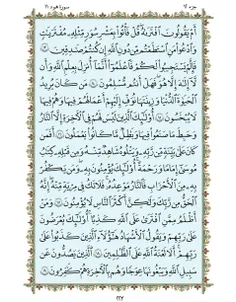 جزء ١٢
سورة هود ١١
أَمْ يَقُولُونَ ٱفْتَرَىٰهُ قُلْ فَأْتُوا۟ بِعَشْرِ سُوَرٍ مِّثْلِهِۦ مُفْتَرَيَٰتٍ
وَٱدْعُوا۟ مَنِ ٱسْتَطَعْتُم مِّن دُونِ ٱللَّهِ إِن كُنتُمْ صَٰدِقِينَ ١٣
فَإِلَّمْ يَسْتَجِيبُوا۟ لَكُمْ فَٱعْلَمُوٓا۟ أَنَّمَآ أُنزِلَ بِعِلْمِ ٱللَّهِ وَأَن
لَّآ إِلَٰهَ إِلَّا هُوَ فَهَلْ أَنتُم مُّسْلِمُونَ ١٤ مَن كَانَ يُرِيدُ
ٱلْحَيَوٰةَ ٱلدُّنْيَا وَزِينَتَهَا نُوَفِّ إِلَيْهِمْ أَعْمَٰلَهُمْ فِيهَا وَهُمْ فِيهَا
لَا يُبْخَسُونَ ١٥ أُو۟لَٰٓئِكَ ٱلَّذِينَ لَيْسَ لَهُمْ فِى ٱلْءَاخِرَةِ إِلَّا ٱلنَّارُ
وَحَبِطَ مَا صَنَعُوا۟ فِيهَا وَبَٰطِلٌ مَّا كَانُوا۟ يَعْمَلُونَ ١٦ أَفَمَن
كَانَ عَلَىٰ بَيِّنَةٍ مِّن رَّبِّهِۦ وَيَتْلُوهُ شَاهِدٌ مِّنْهُ وَمِن قَبْلِهِۦ كِتَٰبُ
مُوسَىٰٓ إِمَامًا وَرَحْمَةً أُو۟لَٰٓئِكَ يُؤْمِنُونَ بِهِۦ وَمَن يَكْفُرْ
بِهِۦ مِنَ ٱلْأَحْزَابِ فَٱلنَّارُ مَوْعِدُهُۥ فَلَا تَكُ فِى مِرْيَةٍ مِّنْهُ إِنَّهُ
ٱلْحَقُّ مِن رَّبِّكَ وَلَٰكِنَّ أَكْثَرَ ٱلنَّاسِ لَا يُؤْمِنُونَ ١٧ وَمَنْ
أَظْلَمُ مِمَّنِ ٱفْتَرَىٰ عَلَى ٱللَّهِ كَذِبًا أُو۟لَٰٓئِكَ يُعْرَضُونَ
عَلَىٰ رَبِّهِمْ وَيَقُولُ ٱلْأَشْهَٰدُ هَٰٓؤُلَآءِ ٱلَّذِينَ كَذَبُوا۟ عَلَىٰ
رَبِّهِمْ أَلَا لَعْنَةُ ٱللَّهِ عَلَى ٱلظَّٰلِمِينَ ١٨ ٱلَّذِينَ يَصُدُّونَ عَن
سَبِيلِ ٱللَّهِ وَيَبْغُونَهَا عِوَجًا وَهُم بِٱلْءَاخِرَةِ هُمْ كَٰفِرُونَ ١٩
٢٢٣